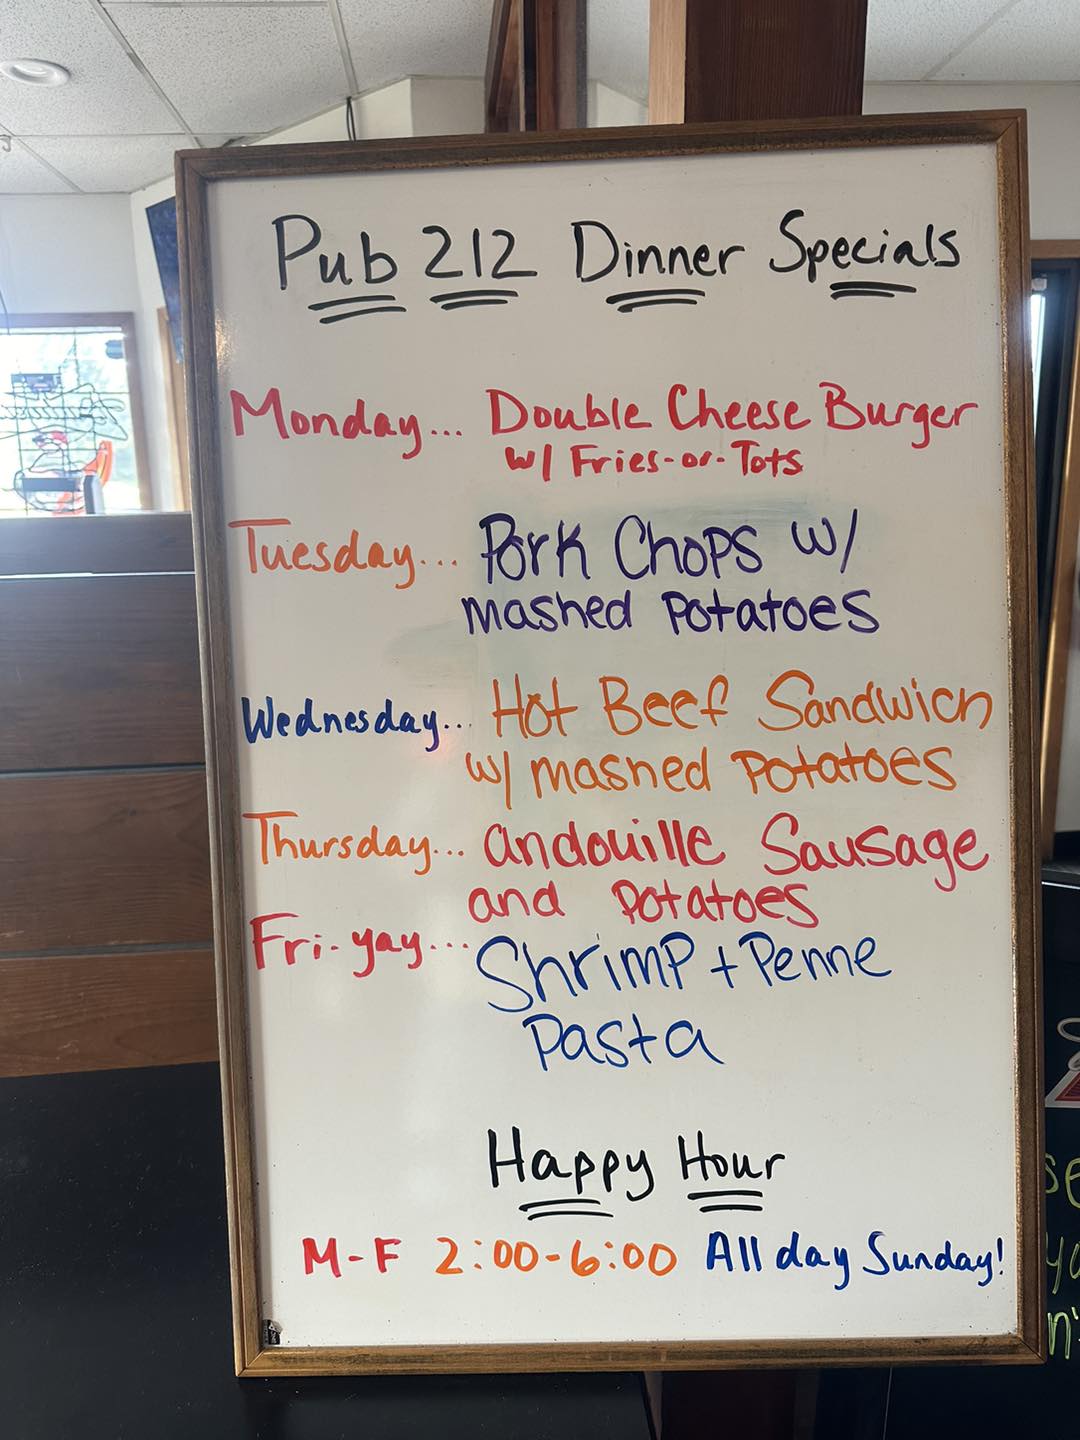 Pub 212 Dinner Specials
Monday... Double Cheese Burger
w/ Fries-or-Tots
Tuesday... Pork Chops w/
mashed potatoes
Wednesday... Hot Beef Sandwich
w/ mashed potatoes
Thursday... andouille Sausage
and potatoes
Fri-yay... Shrimp + Penne
pasta
Happy Hour
M-F 2:00-6:00 All day Sunday!